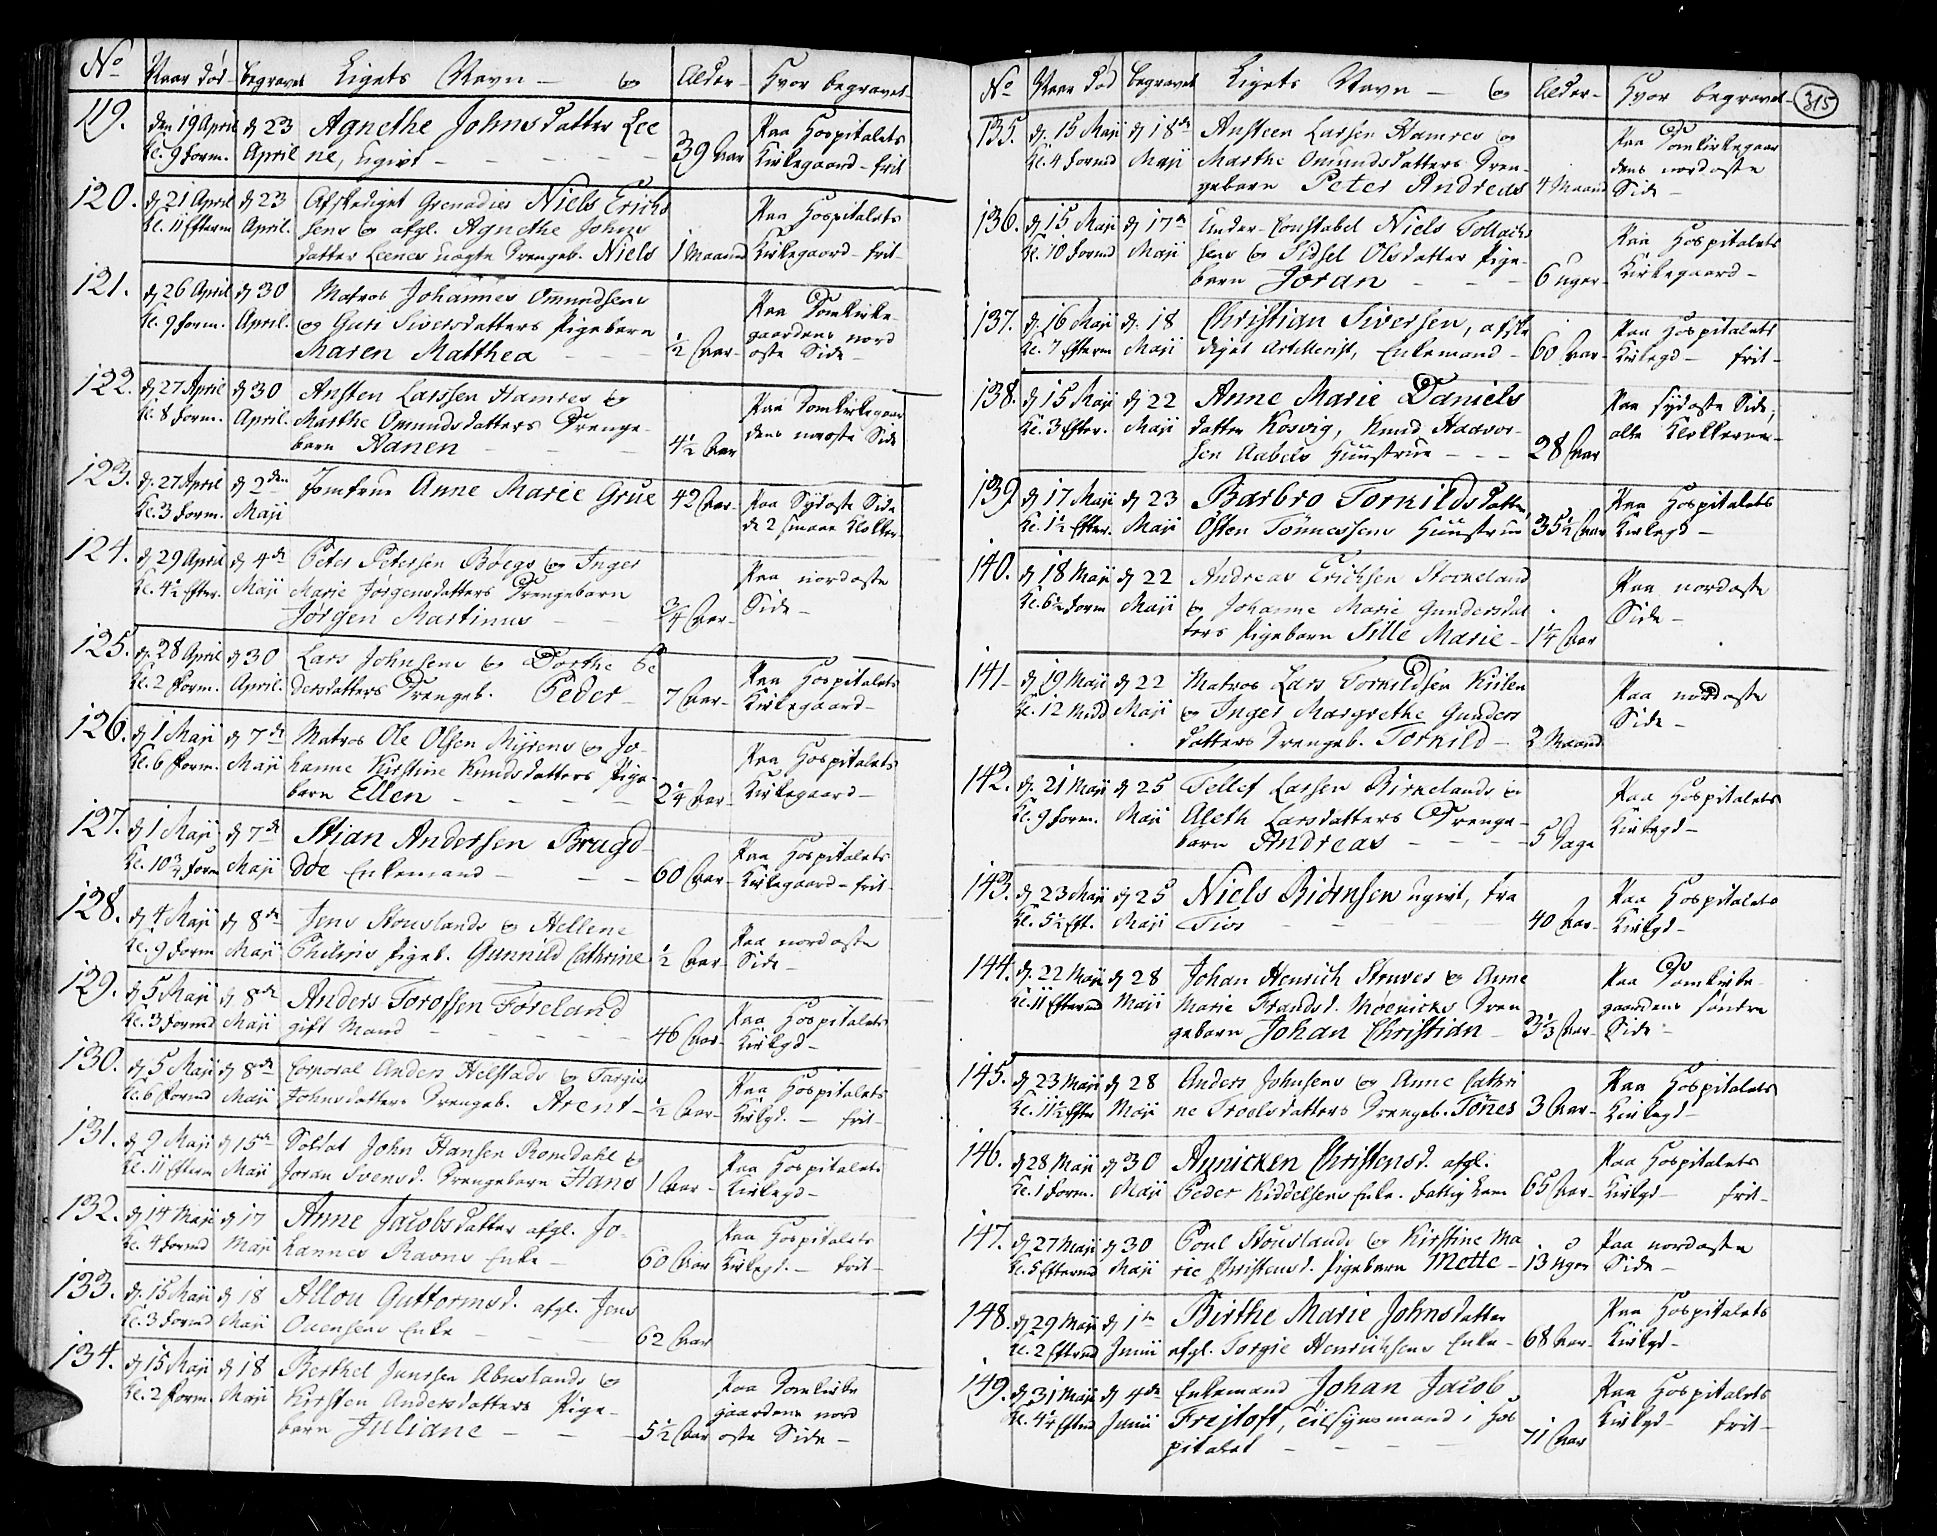 No Naar død begravet Ligets Navn — og Alder Hvor begravet
119. den 19 April d 23 Agnethe Johnsdatter Lee Paa Hospitalets
Kl. 9 Form. April ne, ugivt — 39 Aar Kirkegaard — frit
120. d 21 April d 23 Afskediget Grenadier Niels Erich Paa Hospitalets
Kl. 11 Efterm April. sens og afgl. Agnethe Johns
datter Leenes uægte Drengeb. Niels 1 Maaned Kirkegaard — frit —
121. d 26 April d 30 Matros Johannes Omundsens Paa Domkirke-
Kl. 9 Form. April. og Guri Siversdatters Pigebarn gaardens nord
Maren Matthea — ½ Aar — øste Side —
122. d 27 April d 30 Ansten Larssen Hamres og Paa Domkirkegaar
Kl. 8 Form. April. Marthe Omundsdatters Drenge- dens nordøste Side
barn Aanen — 4½ Aar
123. d. 27 April d 2den Jomfrue Anne Marie Grue 42 Aar — Paa Sydøste Side
Kl. 3 Form. Maji de 2 smaae Klokker
124. d. 29 April d 4de Peter Petersen Bøegs og Inger Paa nordøste
Kl. 4½ Efter. Maji Marie Jørgensdatters Drengebarn Side —
Jørgen Martinus — ¾ Aar —
125. d. 28 April d 30 Lars Johnsens og Dorthe Pe Paa Hospitalets
Kl. 2 Form. April. dersdatters Drengeb. Peder — 7 Aar — Kirkegaard —
126. d 1 Maji d 7de Matros Ole Olsen Myrens og Jo- Paa Hospitalets
Kl. 6 Form. Maji hanne Kirstine Knudsdatters Pige- Kirkegaard —
barn Ellen — 2¼ Aar —
127. d 1 Maji d 7de Stian Andersen Brugd- Paa Hospitalets
Kl. 10¾ Form Maji døe Enkemand — 60 Aar — Kirkegaard — frit —
128. d 4 Maji d 8de Jens Stouslands og Hellene Paa nordøste
Kl. 9 Form Maji Philips Pigeb. Gunnild Cathrine ½ Aar — Side —
129. d 5 Maji d 8de Anders Torossen Foreland Paa Hospitals
Kl. 3 Formd Maji gift Mand — 46 Aar — Kirkgd —
130. d 5 Maji d 8de Corporal Anders Helstads og Targier Paa Hospitalets
Kl. 6 Formd Maji Johnsdatters Drengeb. Arent — ½ Aar — Kirkgd. — frit —
131. d 9 Maji d 15de Soldat John Hansen Romdahl og Paa Hospitalets
Kl. 11 Efterm Maji Joran Svensd. Drengebarn Hans 1 Aar — Kirkegd —
132. d 14 Maji d 17 Anne Jacobsdatter afgl. Jo- Paa Hospitalets
Kl. 4 Formd Maji hannes Ravns Enke — 60 Aar Kirkegd. — frit —
133. d. 15 Maji d 18 Allou Guttormsd. afgl. Jens
Kl. 3 Formd Maji Ovensens Enke — 62 Aar
134. d 15 Maji d 18 Berthel Jenssen Abuslands og Paa Domkirke
Kl. 2 Form. Maji Kirsten Andersdatters Pige- gaardens nord
barn Juliane — 5½ Aar øste Side —
No Naar død begravet Ligets Navn — og Alder — Hvor begravet — 315
135. d. 15 Maji d 18de Ansteen Larsen Hamres og Paa Domkirkegaar
Kl. 4 Formd Maji Marthe Omundsdatters Dren- dens nordøste
gebarn Peter Andreas 4 Maaned Side —
136. d 15 Maji d 17de Under-Constabel Niels Tollachs Paa Hospitalets
Kl. 10 Formd Maji sens og Sidsel Olsdatter Pige- Kirkegaard —
barn Joran — 6 uger —
137. d. 16 Maji d. 18 Christian Siversen, afske Paa Hospitalets
Kl. 7 Efterm Maji diget Artillerist, Enkemand — 60 Aar — Kirkegd — frit —
138. d 15 Maji d 22 Anne Marie Daniels Paa sydøste Side,
Kl. 3 Efter. Maji datter Kosvig, Knud Haavor- alle Klokkerne —
sen Aabels Huustrue — 28 Aar
139. d 17 Maji d 23 Barbro Torkildsdatter, Paa Hospitalets
Kl. 1½ Efter. Maji Osten Tønnessens Huustrue 35½ Aar Kirkegd —
140. d 18 Maji d 22 Andreas Erichsen Stokeland Paa nordøste
Kl. 6½ Form Maji og Johanne Marie Gundersdat Side —
ters Pigebarn Sille Marie — 1¼ Aar
141 — d 19 Maji d 22 Matros Lars Torkildsen Kiilen Paa nordøste
Kl. 12 Midd Maji og Inger Margrethe Gunders Side —
datters Drengeb. Torkild — 2 Maaned
142. d. 21 Maji d 25 Tellef Larsen Birkelands og Paa Hospitalets
Kl. 9 Form. Maji Aleth Larsdatters Drenge- Kirkegd —
barn Andreas — 5 Dage
143. d 23 Maji d 25 Niels Biørnsen ugivt, fra Paa Hospitalets
Kl. 5½ Eft. Maji Tios — 40 Aar — Kirkgd —
144. d. 22 Maji d 28 Johan Henrich Struves og Anne Paa Domkirke-
Kl. 11 Eftermd Maji Marie Frandsd. Møenicks Dren gaardens søndre
gebarn Johan Christian — 3⅓ Aar — Side —
145. d 23 Maji d 28 Anders Johnsens og Anne Cathri Paa Hospitalets
Kl. 11½ Efter Maji ne Troelsdatters Drengeb. Tönes 3 Aar — Kirkegd —
146. d 28 Maji d 30 Annicken Christensd. afgl. Paa Hospitalets
Kl. 1 Form. Maji Peder Kiddelsens Enke. fattig Lem 65 Aar — Kirkgd — frit —
147. d 27 Maji d 30 Poul Stouslands og Kirstine Ma Paa nordøste
Kl. 5 Eftermd Maji rie Christensd. Pigebarn Mette — 13 Uger Side —
148. d 29 Maji d 1te Birthe Marie Johnsdatter Paa Hospitalets
Kl. 2 Eftermd Junii afgl. Torgie Henrichsens Enke — 68 Aar — Kirkgd —
149. d. 31 Maji d 4de Enkemand Johan Jacob Paa Hospitalets
Kl. 4¼ Eftermd Junii Frejtoft, Tilsynsmand i Hos Kirkgd — frit —
pitalet — 71 Aar